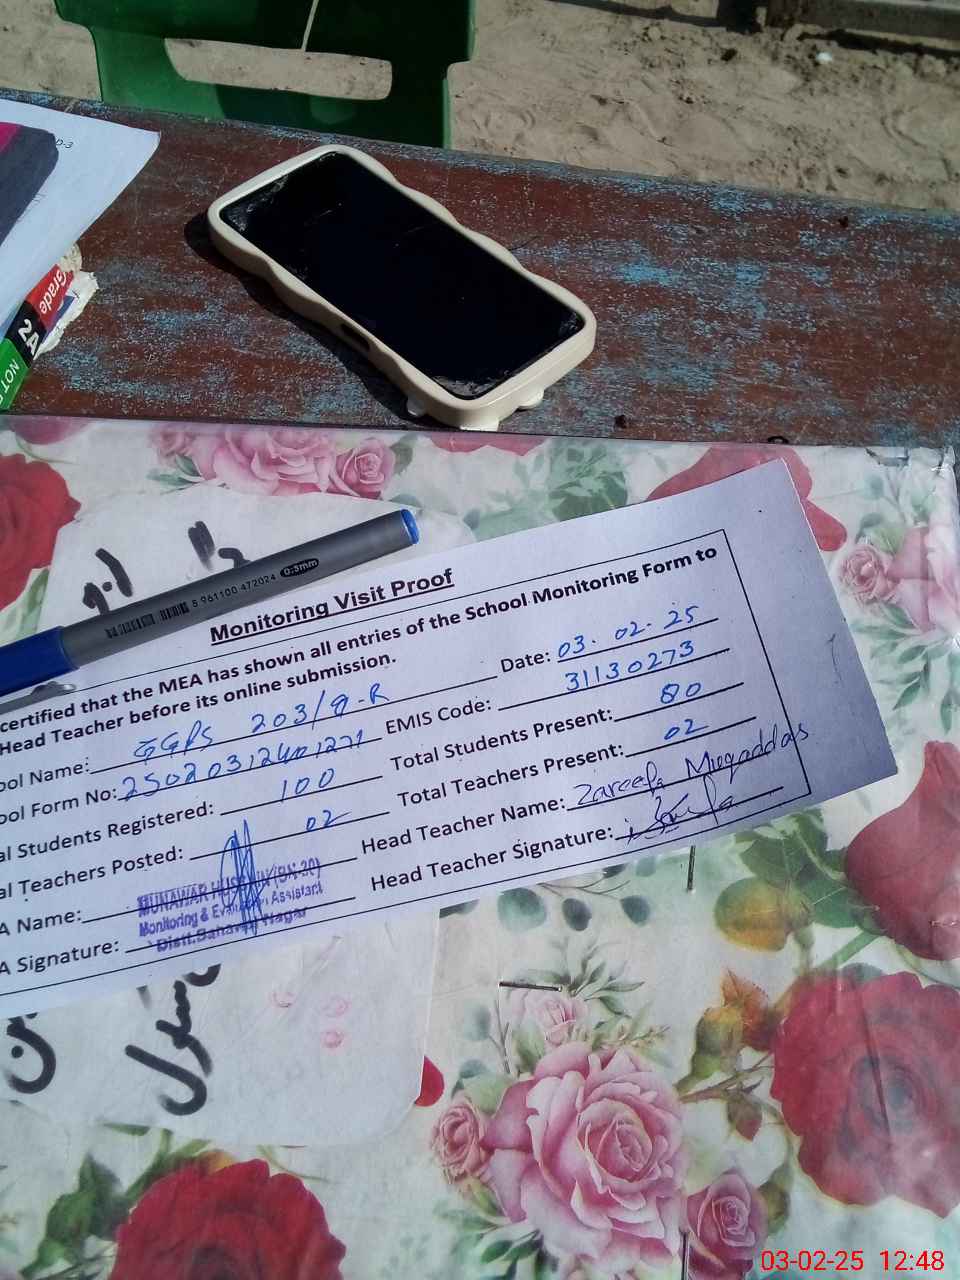 D-3
Grade
2A
NOT
5 961100 472024 0.3mm
Monitoring Visit Proof
certified that the MEA has shown all entries of the School Monitoring Form to
Head Teacher before its online submission.
Date: 03. 02. 25
ool Name: GGPS 203/9-R EMIS Code: 31130273
ool Form No: Total Students Present: 80
al Students Registered: 100 Total Teachers Present: 02
al Teachers Posted: 02 Head Teacher Name: Zareefa Muqaddas
A Name: Head Teacher Signature:
MUNAWAR HUSSAIN
Monitoring & Evaluation Assistant
A Signature: Distt. Bahawal Nagar
03-02-25 12:48